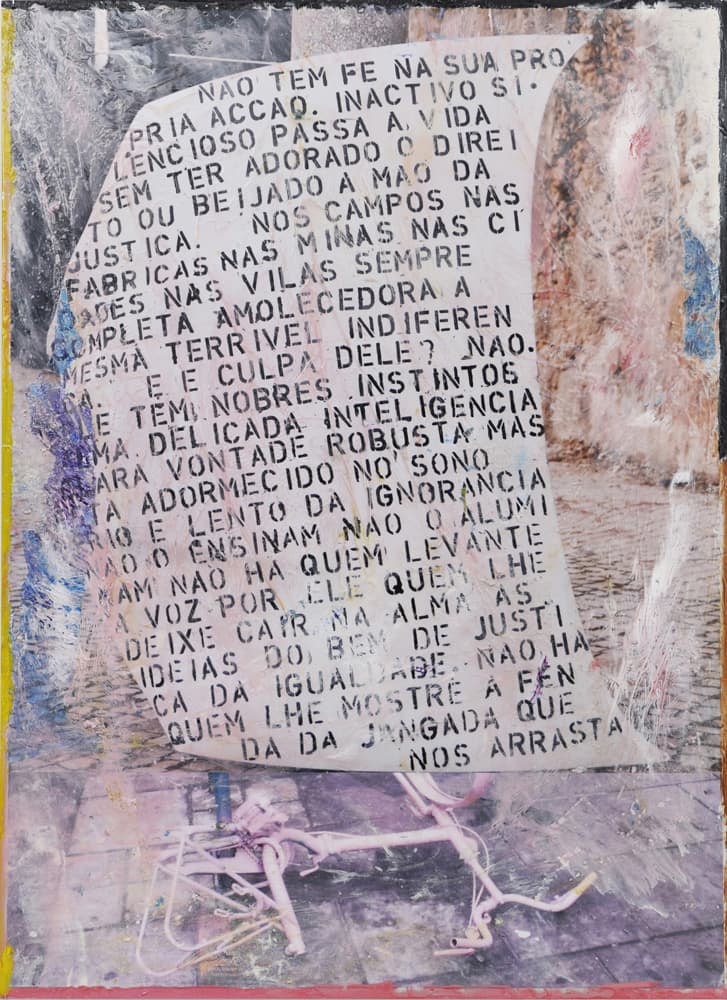 NAO TEM FE NA SUA PRO
PRIA ACCAO. INACTIVO SI-
LENCIOSO PASSA A VIDA
SEM TER ADORADO O DIREI
TO OU BEIJADO A MAO DA
JUSTICA. NOS CAMPOS NAS
FABRICAS NAS MINAS NAS CI
DADES NAS VILAS SEMPRE
COMPLETA AMOLECEDORA A
MESMA TERRIVEL INDIFEREN
CA. E E CULPA DELE? NAO.
E TEM NOBRES INSTINTOS
MA DELICADA INTELIGENCIA
ARA VONTADE ROBUSTA MAS
TA ADORMECIDO NO SONO
RIO E LENTO DA IGNORANCIA
NAO O ENSINAM NAO O ALUMI
AM NAO HA QUEM LEVANTE
A VOZ POR ELE QUEM LHE
DEIXE CAIR NA ALMA AS
IDEIAS DO BEM DE JUSTI
CA DA IGUALDADE. NAO HA
QUEM LHE MOSTRE A FEN
DA DA JANGADA QUE
NOS ARRASTA